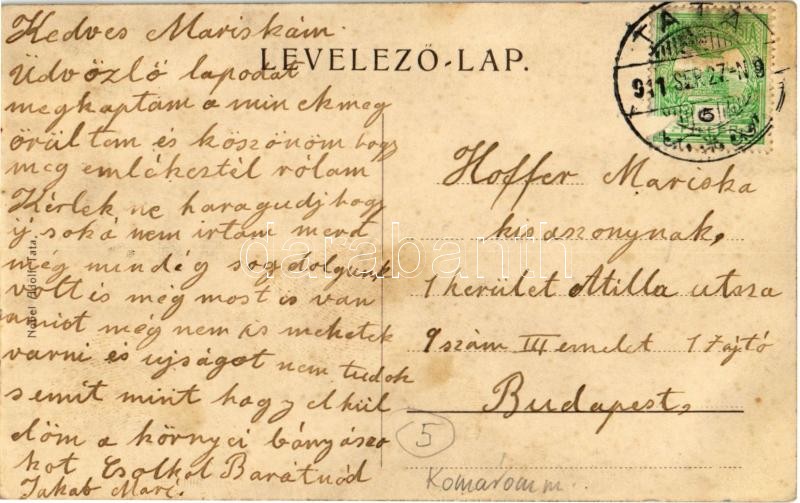 Kedves Mariskám
Üdvözlő lapodat
megkaptam a minekmeg
örültem és köszönöm hogy
meg emlékeztél rólam
Kérlek ne haragudj hogy
ij soká nem irtam merd
még mindég sog dolgunk
vótt és még most is van
amiót még nem is mehetek
varni és ujságot nem tudok
semit mint hogy elkül
döm a környei bányászo
kot Csolkol Barátnód
Jakab Mari.
LEVELEZŐ-LAP.
TATA
911 SEP. 27-N 9
Hoffer Mariska
kisaszonynak,
1 kerület Atilla utsza
9 szám III emelet 17 ajtó
Budapest,
5
Komárom m.
Nobel Adolf Tata.
darabanth.com